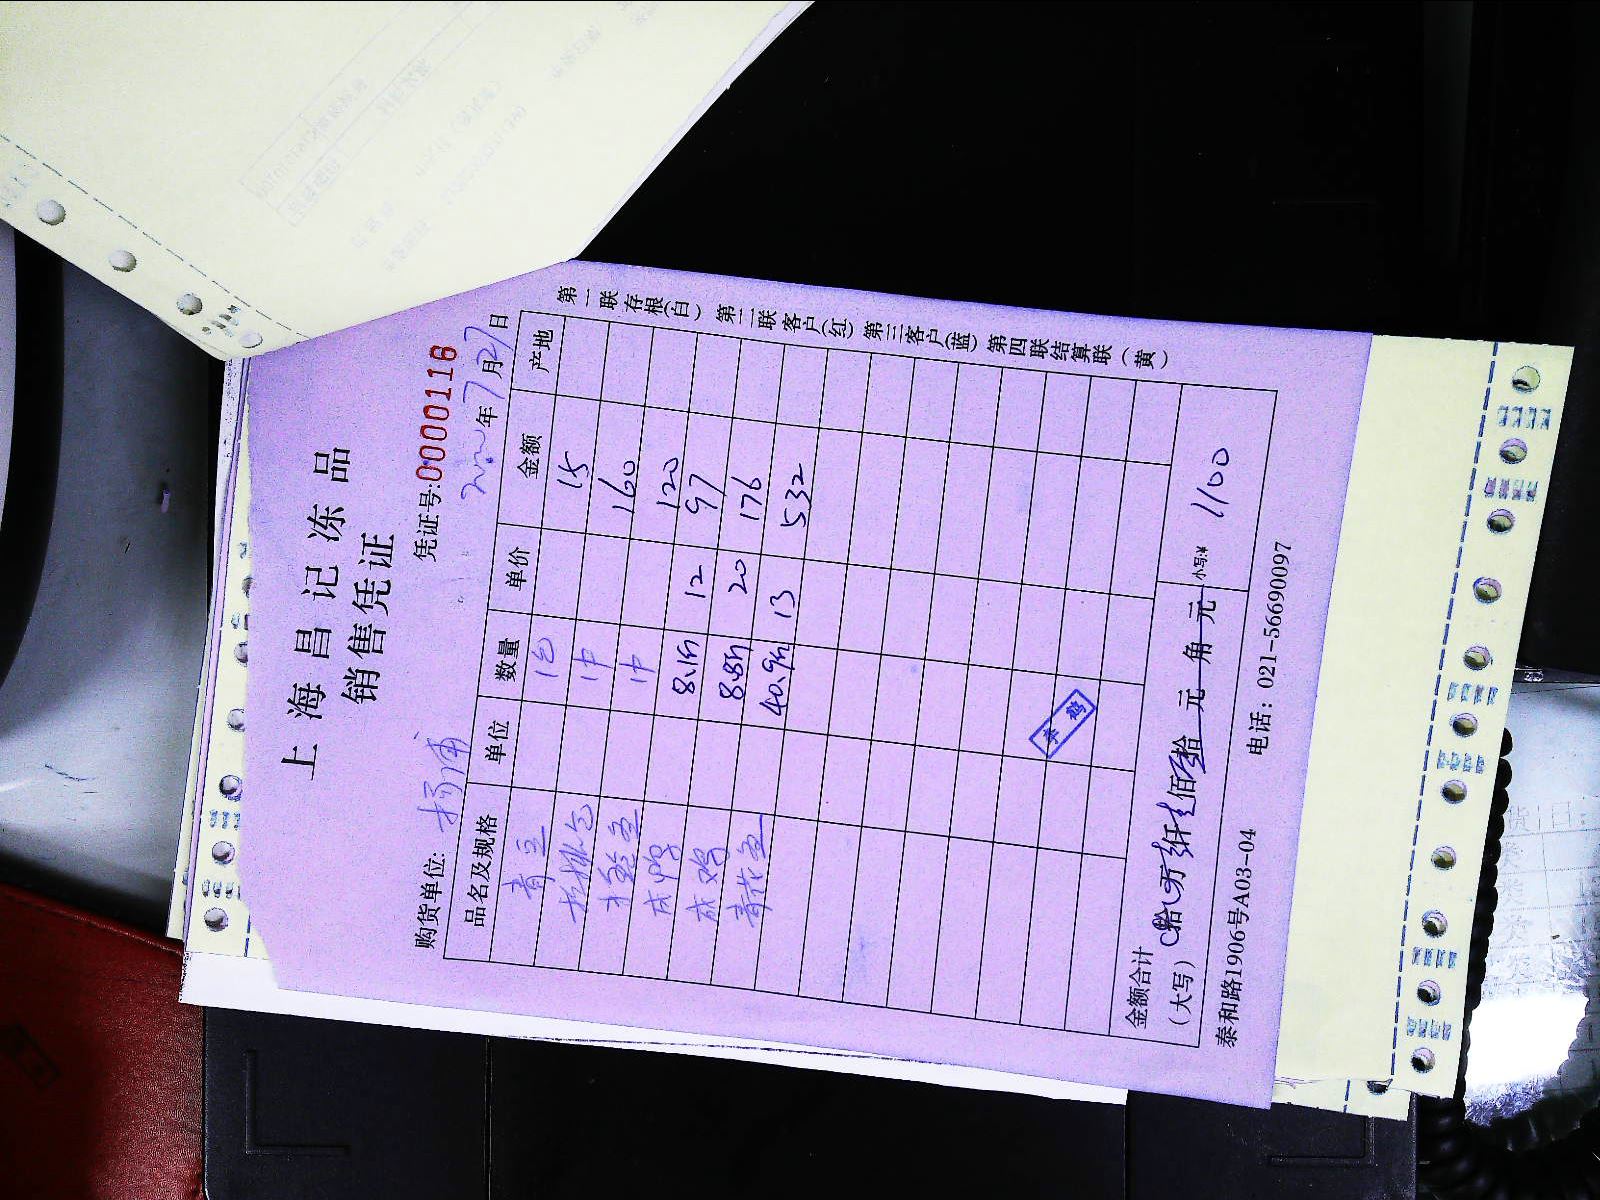 上海昌记冻品
销售凭证
凭证号:0000116
购货单位: 杨浦 年7月27日
品名及规格 单位 数量 单价 金额 产地
青豆 1包 15
1中 160
1中 120
成鸭 8.1斤 12 97
成鸡 8.8斤 20 176
青花鱼 40.9斤 13 532
金额合计
(大写) 拾 万 仟 佰 拾 元 角 元 小写:¥ 1100
泰和路1906号A03-04 电话: 021-56690097
第一联存根(白) 第二联客户(红) 第三客户(蓝) 第四联结算联(黄)